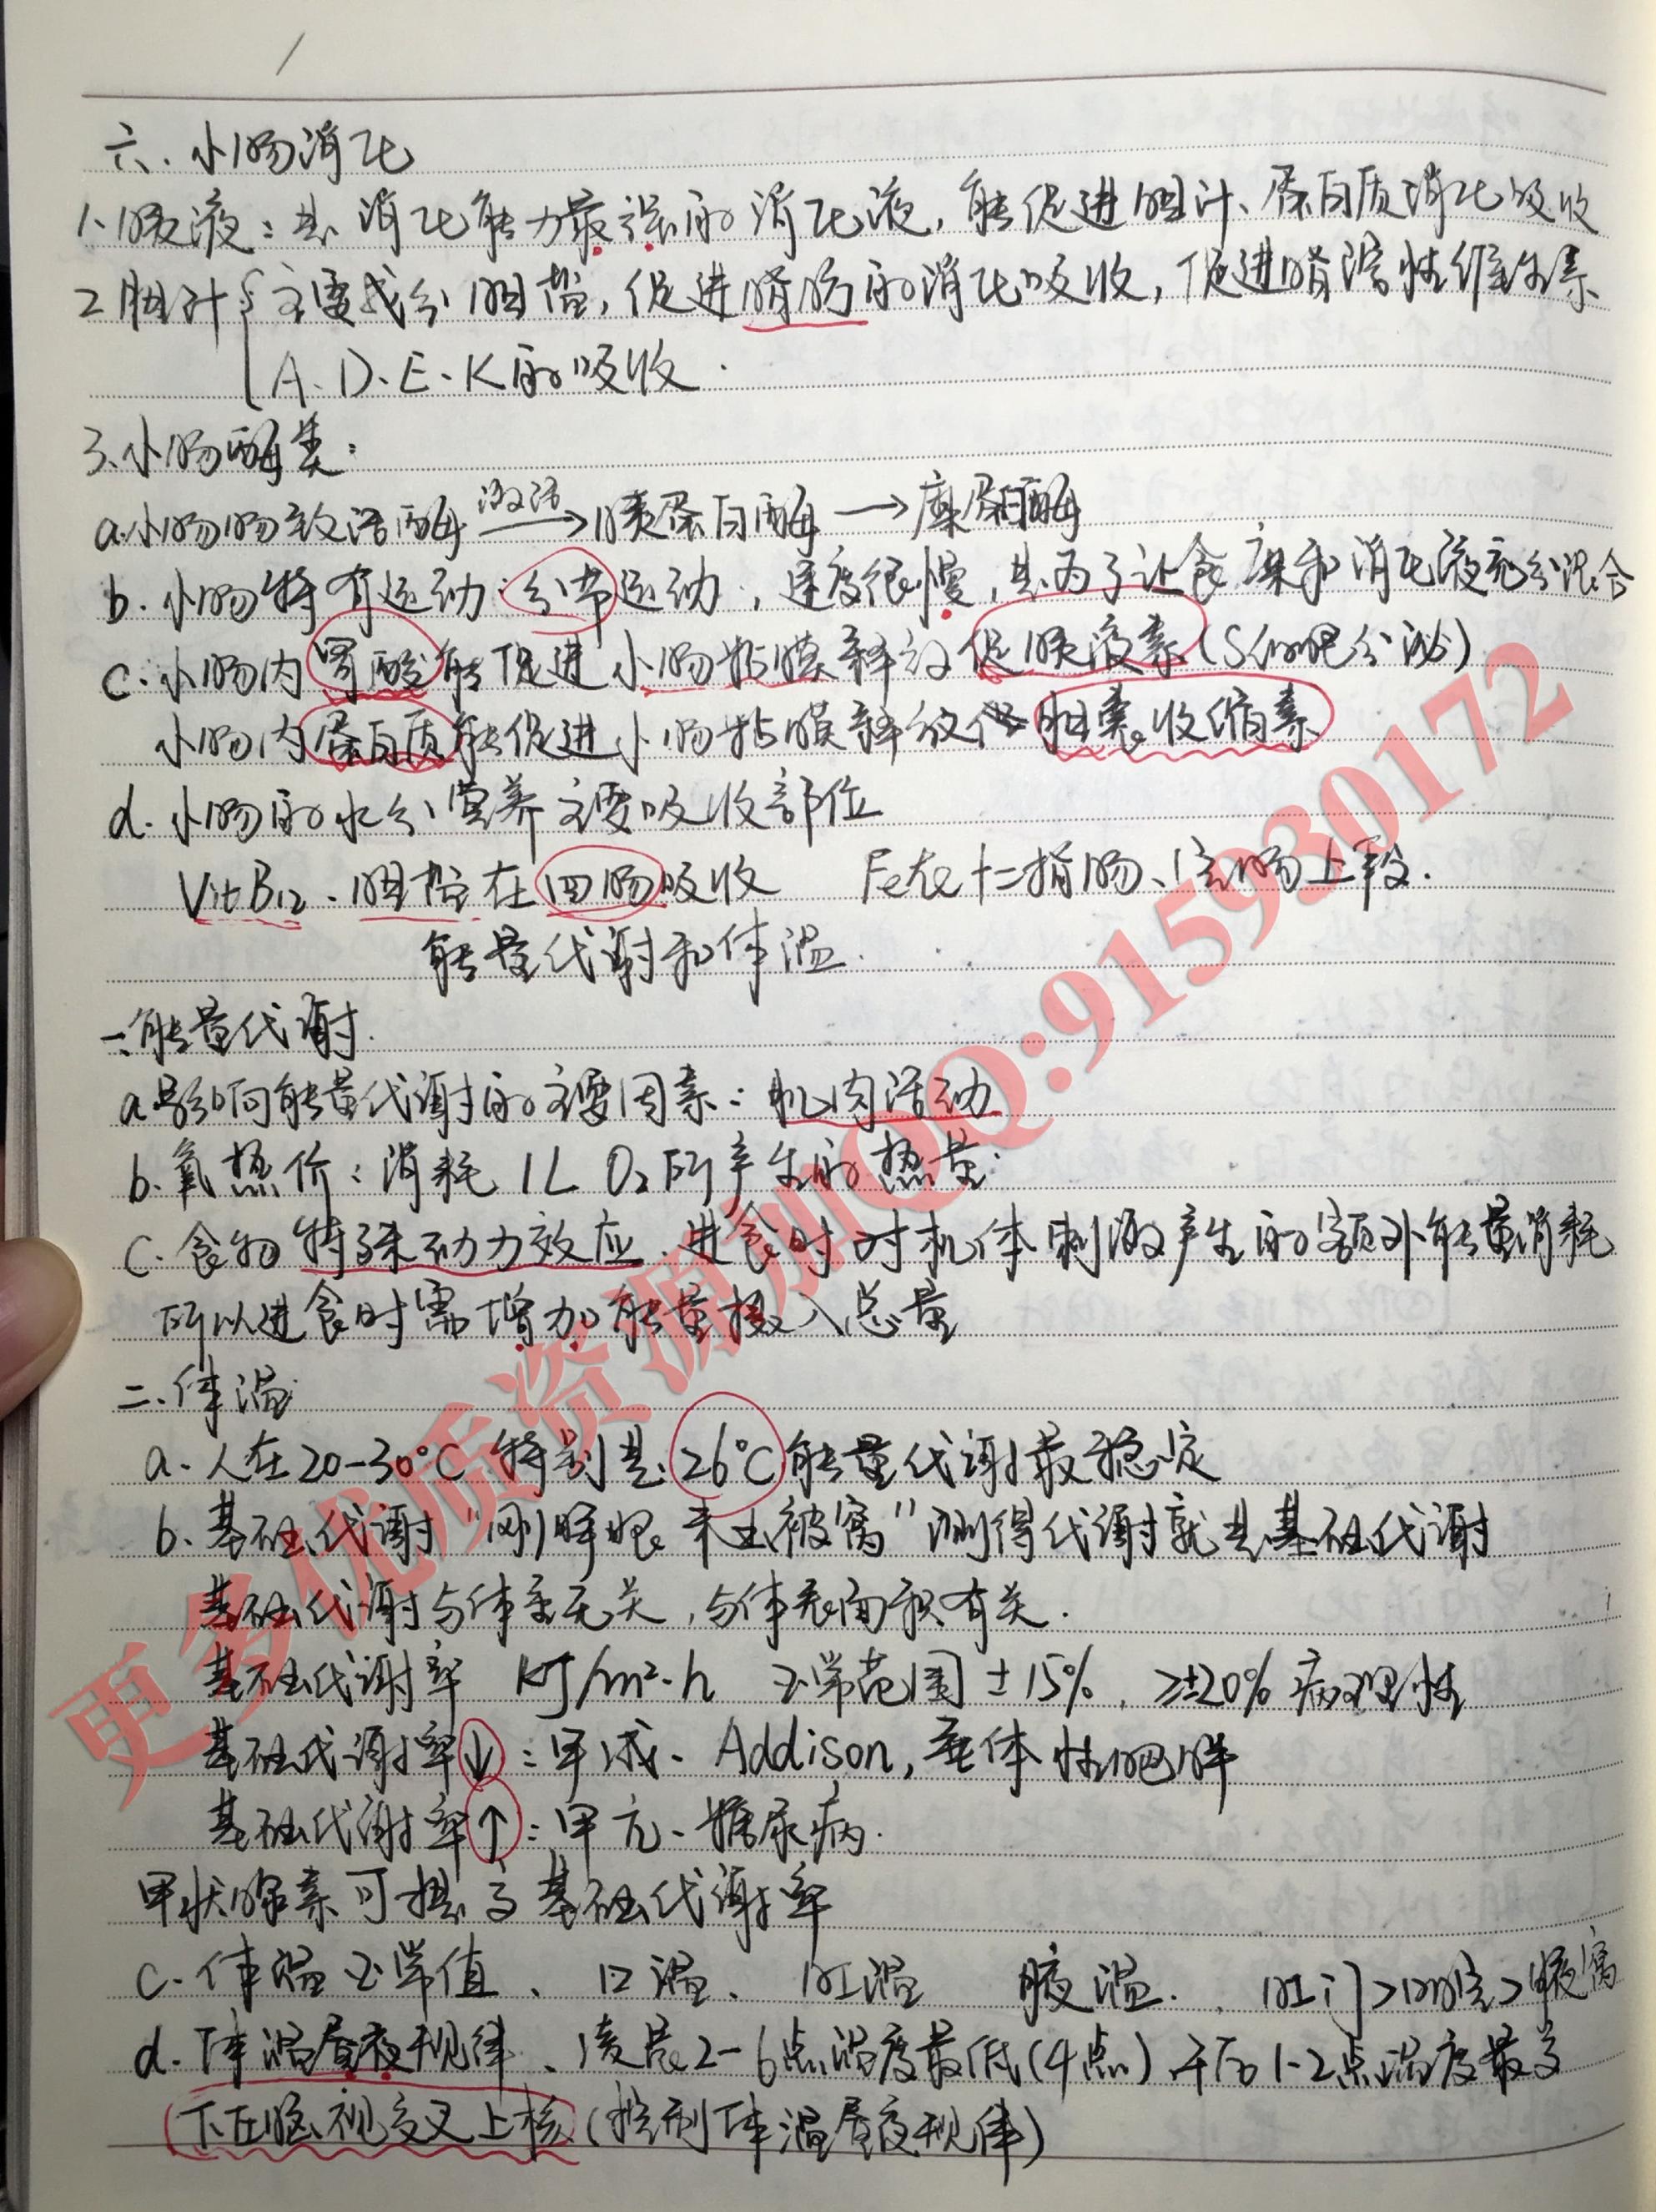 六、小肠消化
1、胰液：是消化能力最强的消化液，能促进胆汁、蛋白质消化吸收
2、胆汁{主要成分胆盐，促进脂肪的消化吸收，促进脂溶性维生素
A、D、E、K的吸收.
3、小肠酶类：
a.小肠肠致活酶 激活→胰蛋白酶→糜蛋白酶
b.小肠特有运动：分节运动，速度很慢，是为了让食糜和消化液充分混合
c.小肠内胃酸能促进小肠粘膜释放促胰液素(S细胞分泌)
小肠内蛋白质能促进小肠粘膜释放 胆囊收缩素
d.小肠的水分营养主要吸收部位
VitB12、胆盐在回肠吸收 Fe在十二指肠、空肠上段.
能量代谢和体温.
一、能量代谢.
a.影响能量代谢的主要因素：肌肉活动
b.氧热价：消耗1L O₂所产生的热量.
c.食物特殊动力效应.进食时对机体刺激产生的额外能量消耗
所以进食时需增加能量摄入总量
二、体温
a.人在20-30℃特别是26℃能量代谢最稳定
b.基础代谢"刚睁眼未出被窝"测得代谢就是基础代谢
基础代谢与体重无关，与体表面积有关.
基础代谢率 KJ/m²·h 正常范围±15%，≥±20%病理性
基础代谢率↓：甲减、Addison，垂体性肥胖
基础代谢率↑：甲亢、糖尿病.
甲状腺素可提高基础代谢率
c.体温正常值、口温、肛温 腋温.、肛门>口腔>腋窝
d.体温昼夜规律、凌晨2-6点温度最低(4点)午后1-2点温度最高
下丘脑视交叉上核(控制体温昼夜规律)
更多优质资源加QQ:915930172